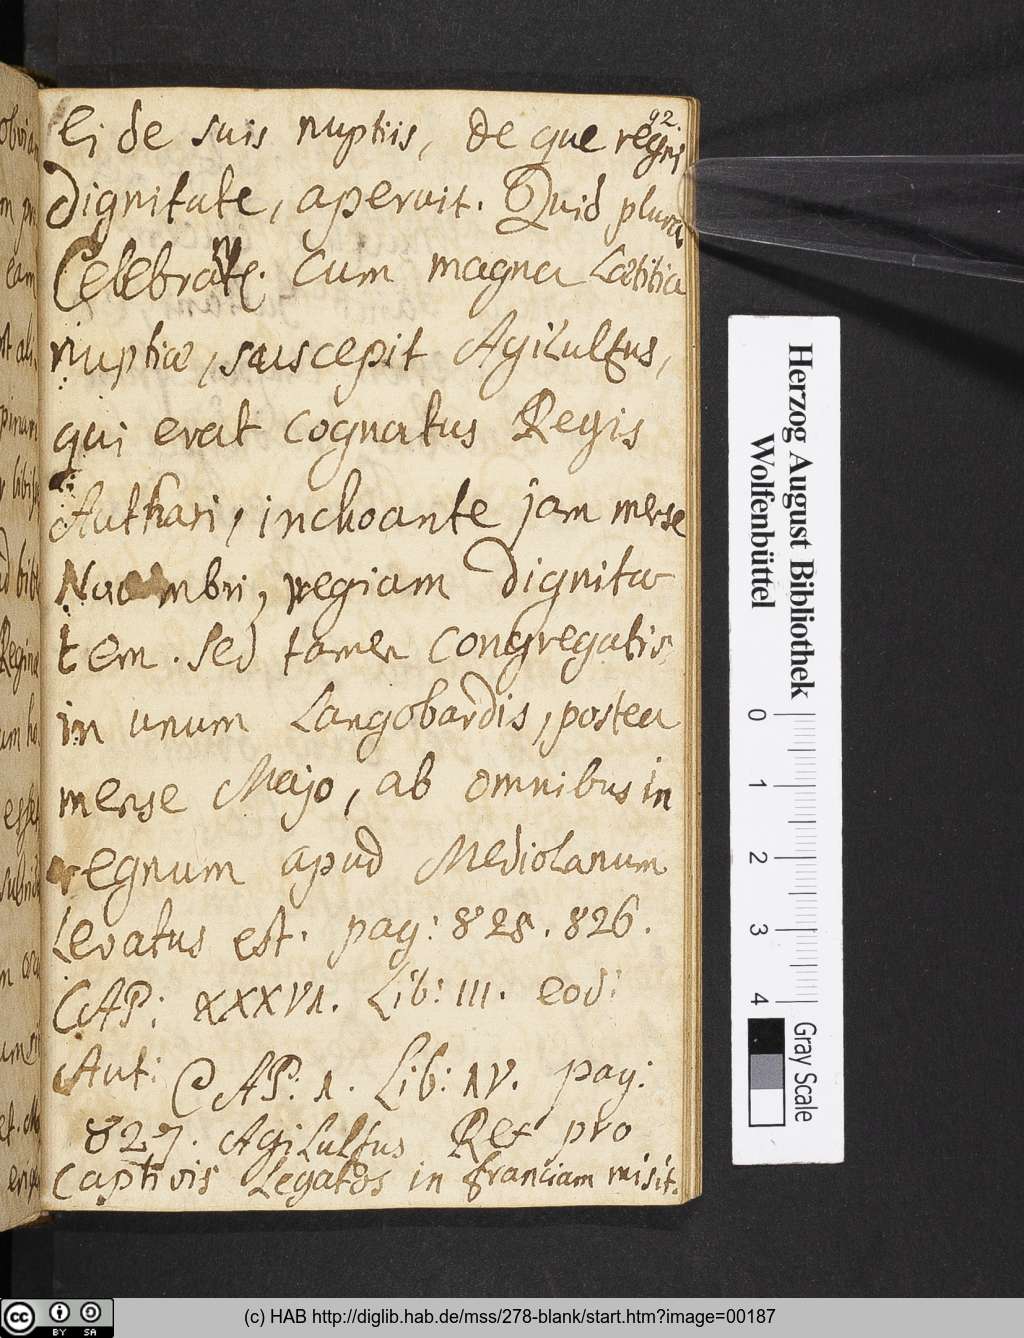 92
Ei de suis nuptiis, de que regni
dignitate, aperuit. Quid plura
Celebrate. cum magna Lætitia
nuptiæ, suscepit Agilulfus,
qui erat cognatus Regis
Authari, inchoante jam mense
Novembri, regiam dignita-
tem. Sed tamen congregatis
in unum Langobardis, postea
mense Majo, ab omnibus in
regnum apud Mediolanum
Levatus est. pag: 825. 826.
CAP: XXXVI. Lib: III. eod:
Aut: CAP: 1. Lib: IV. pag:
827. Agilulfus Rex pro
captivis Legatos in franciam misit.
Herzog August Bibliothek
Wolfenbüttel
0 1 2 3 4
Gray Scale
cc BY SA
(c) HAB http://diglib.hab.de/mss/278-blank/start.htm?image=00187